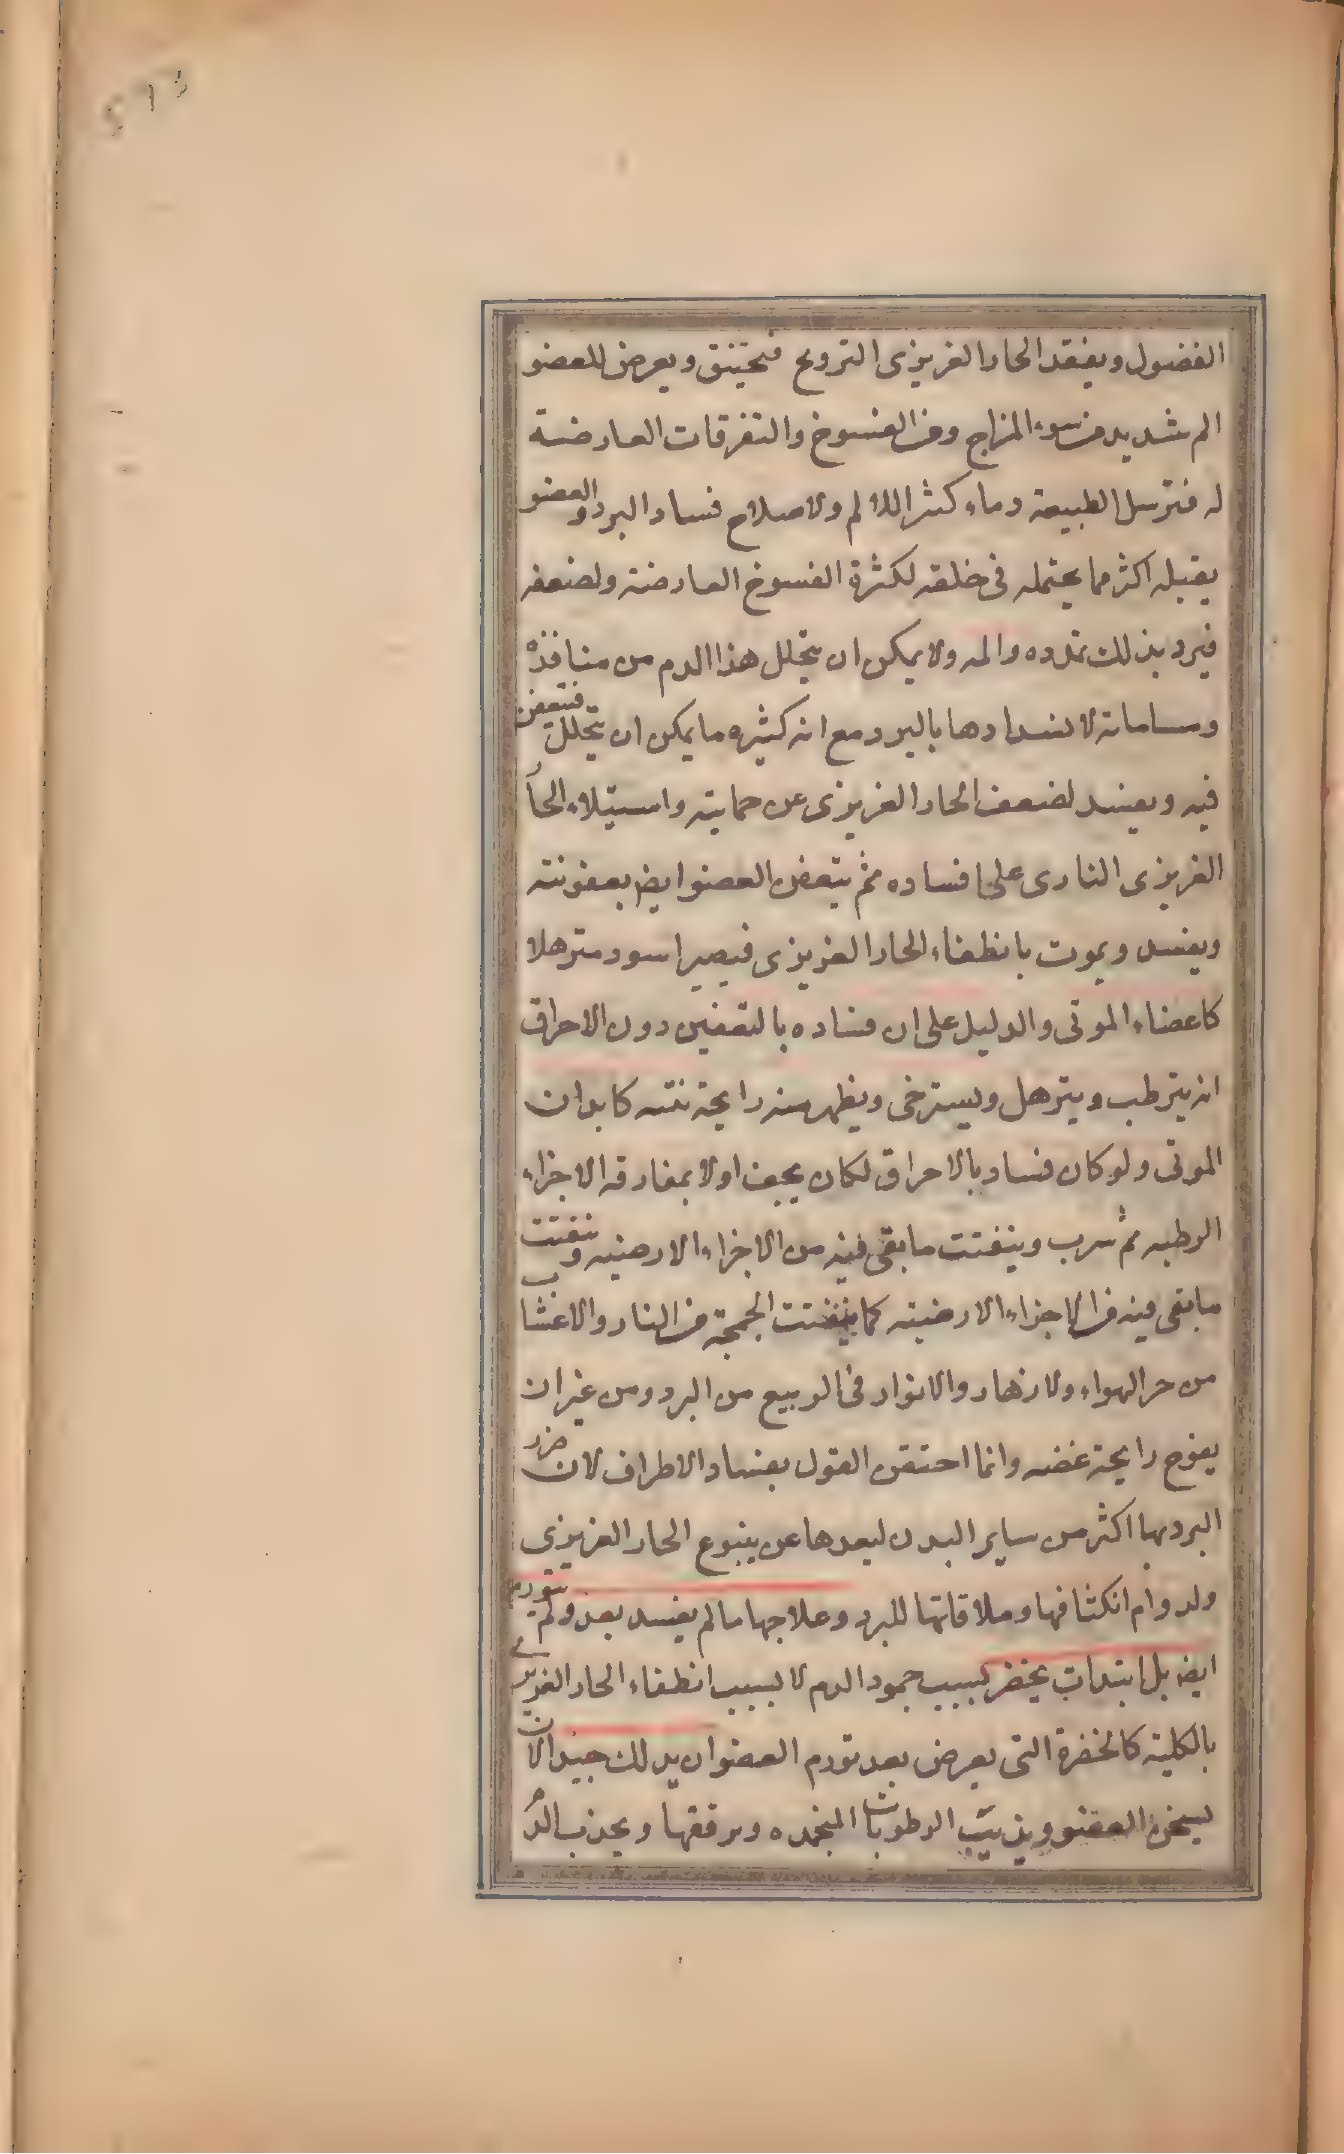 الفضول ويفقد الحار الغريزى الترويح فيختنق ويعرض للعضو
الم شديد من سوء المزاج ومن الفسوخ والتفرقات العارضة
له فترسل الطبيعة دماء كثيرا للالم ولاصلاح فساد البرد والعضو
يقبله اكثر مما يحتمله فى خلقه لكثرة الفسوخ العارضة ولضعفه
فيزد بذلك تمدده والمه ولا يمكن ان يتحلل هذا الدم من منافذه
ومساماته لانسدادها بالبرد مع انه كثيره ما يمكن ان يتحلل فتتعفن
فيه ويفسد لضعف الحار الغريزى عن حمايته واستيلاء الحا
الغريزى النارى على افساده ثم يتعفن العضو ايض بعفونته
ويفسد ويموت بانطفاء الحار الغريزى فيصير اسود مترهلا
كاعضاء الموتى والدليل على ان فساده بالتعفين دون الاحراق
انه يترطب ويترهل ويسترخى ويظهر منه رايحة نتنه كابدان
الموتى ولو كان فساد بالاحراق لكان يجف اولا بمفارقه الاجزاء
الرطبه ثم سرب ويتفتت ما بقى فيه من الاجزاء الارضيه ويتفتت
ما بقى فيه من الاجزاء الارضيته كما يتفتت الجمجة من النار والاعشاب
من حر الهواء ولازهار والانوار فى الربيع من البرد ومن غير ان
يفوح رايحة غضه وانما احتقن القول بفساد الاطراف لان ضرر
البرد بها اكثر من ساير البدن لبعدها عن ينبوع الحار الغريزى
ولدوام انكشافها وملاقاتها للبرد وعلاجها ما لم يفسد بعد ولم يتورم
ايض بل ابتدات يخضر بسبب جمود الدم لا بسبب انطفاء الحار الغريزى
بالكلية كالخضرة التى يعرض بعد تورم العضو ان يدلك جيدا لان
يسخن العضو ويذيب الرطوبات المنجمده ويرققها ويجذب الد